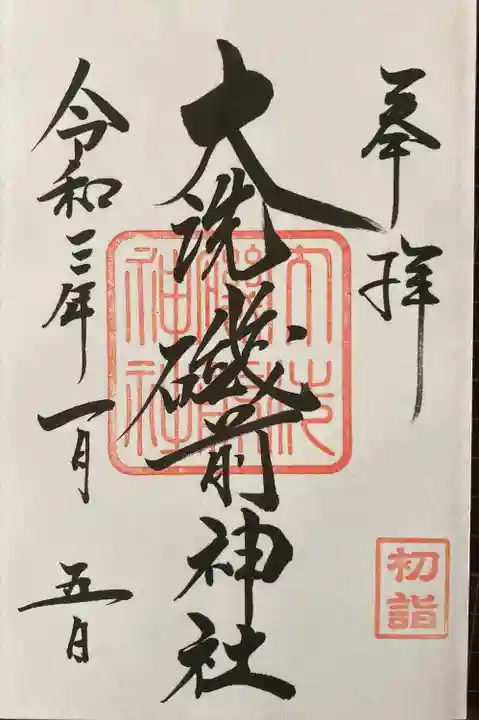 奉拝
初詣
大洗磯前神社
大洗磯前神社
令和三年一月五日